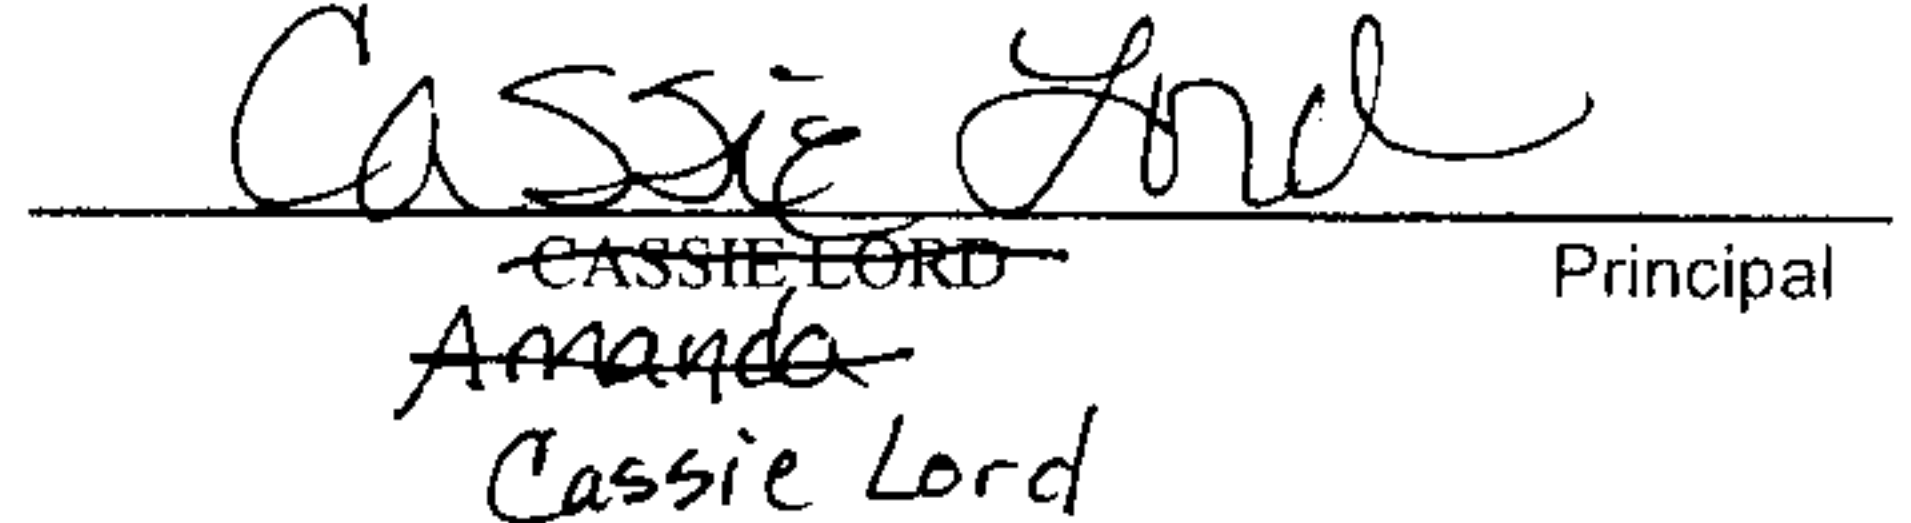 Cassie Lord
CASSIE LORD Principal
Amanda
Cassie Lord